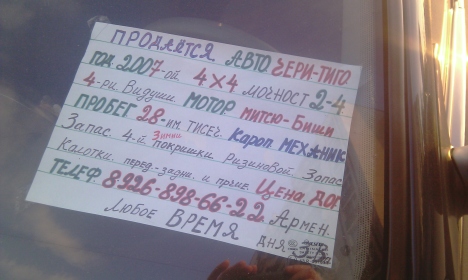 ПРОДАЁТСЯ АВТО ЧЕРИ-ТИГО
ГОД 2007-ой 4×4 МОЧНОСТ 2-4
4-ри Видущи. МОТОР МИТСЮ-БИШИ
ПРОБЕГ 28-им. ТИСЕЧ. Кароп. МЕХАНИК
Запас. 4-й. Зимни покришки Ризиновой. Запас
Калотки. перед.-задни. и прчие. Цена. ДОГ
ТЕЛЕФ. 8926-898-66-22. Армен.
ЛЮБОЕ ВРЕМЯ
ДНЯ